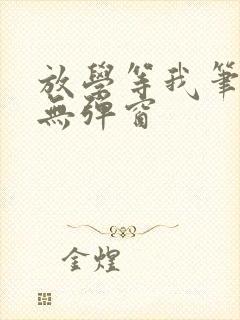 放學等我筆
無彈窗
金煌